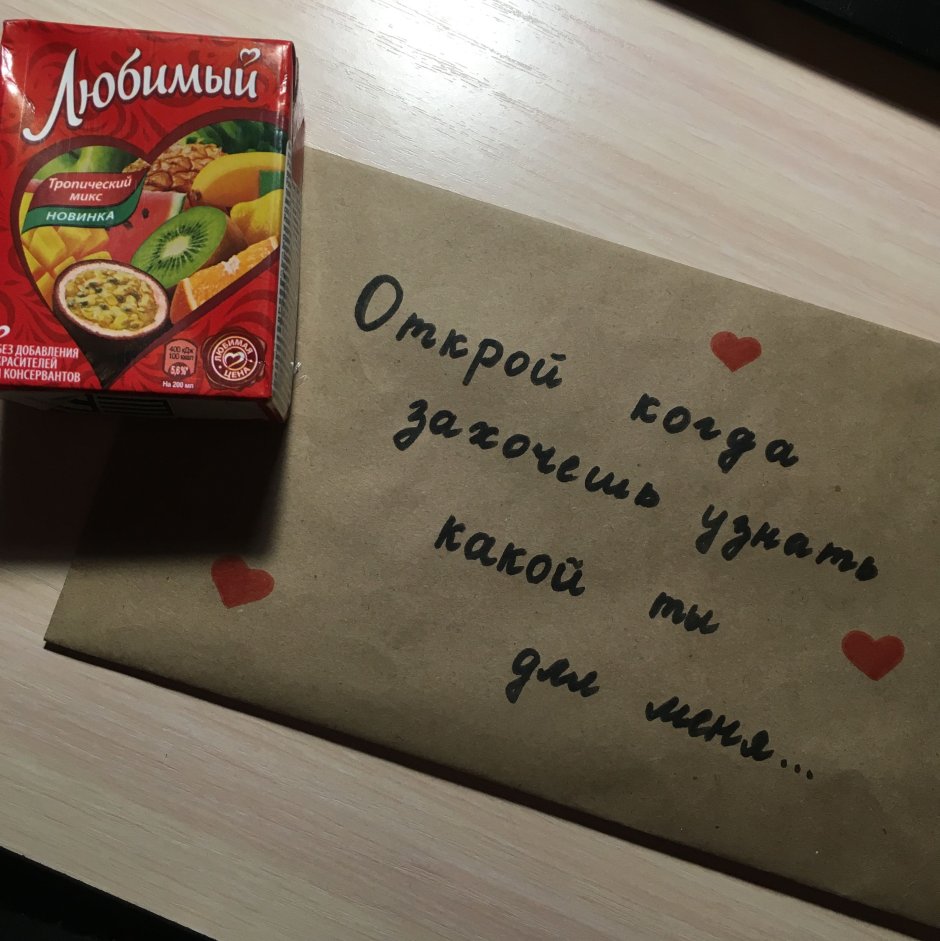 Любимый
Тропический
микс
НОВИНКА
БЕЗ ДОБАВЛЕНИЯ
КРАСИТЕЛЕЙ
И КОНСЕРВАНТОВ
400 кДж
100 ккал
5,6%*
На 200 мл
ЛЮБИМАЯ
ЦЕНА
Открой когда
захочешь узнать
какой ты
для меня...